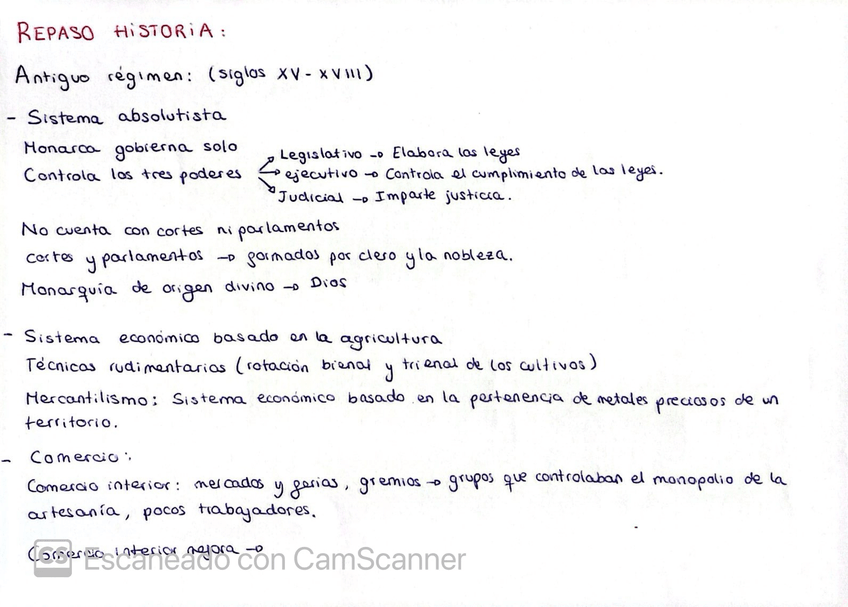 REPASO HISTORIA:
Antiguo régimen: (siglos XV - XVIII)
- Sistema absolutista
Monarca gobierna solo
Controla los tres poderes
Legislativo → Elabora las leyes
ejecutivo → Controla el cumplimiento de las leyes.
Judicial → Imparte justicia.
No cuenta con cortes ni parlamentos
cortes y parlamentos → formados por clero y la nobleza.
Monarquía de origen divino → Dios
- Sistema económico basado en la agricultura
Técnicas rudimentarias (rotación bienal y trienal de los cultivos)
Mercantilismo: Sistema económico basado en la pertenencia de metales preciosos de un
territorio.
- Comercio:
Comercio interior: mercados y ferias, gremios → grupos que controlaban el monopolio de la
artesanía, pocos trabajadores.
Comercio interior mejora →
CS Escaneado con CamScanner